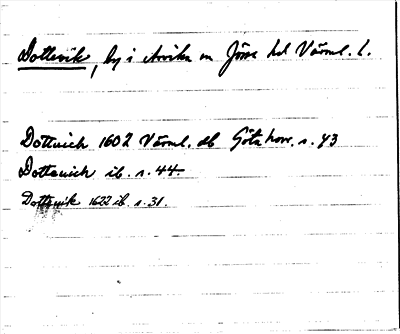 Dottevik, by i Arvika sn Jösse hd Värml. l.
Dottwich 1602 Värml. db Götahovr. s. 43
Dottewich ib. s. 44
Dottewik 1622 ib. s. 31.